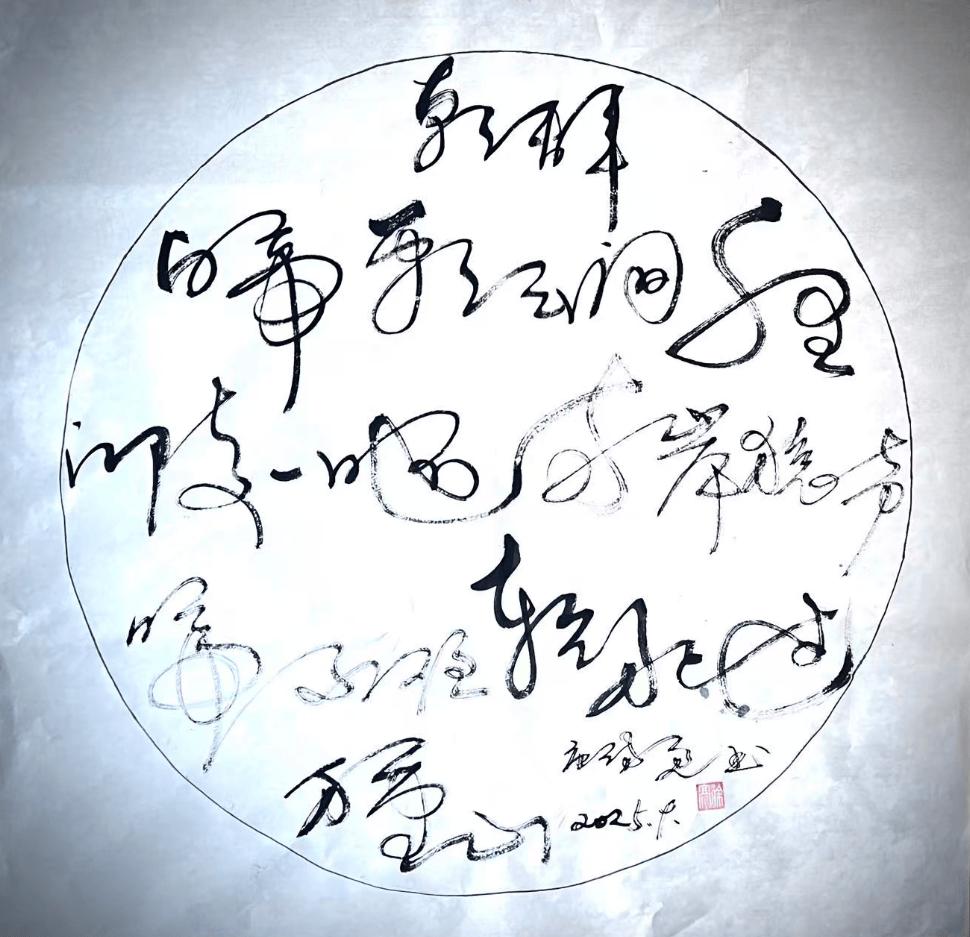 朝辞
白帝彩云间千里
江陵一日还两岸猿声
啼不住轻舟已过
万重山
2025.9.